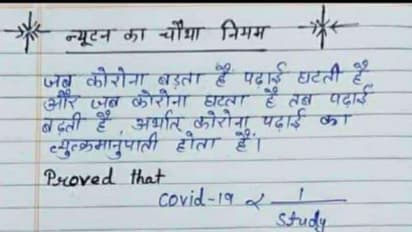 न्यूटन का चौथा नियम
जब कोरोना बड़ता है पढ़ाई घटती है
और जब कोरोना घटता है तब पढ़ाई
बढ़ती है, अर्थात कोरोना पढ़ाई का
व्युत्क्रमानुपाती होता है।
Proved that
Covid-19 ∝ 1
Study